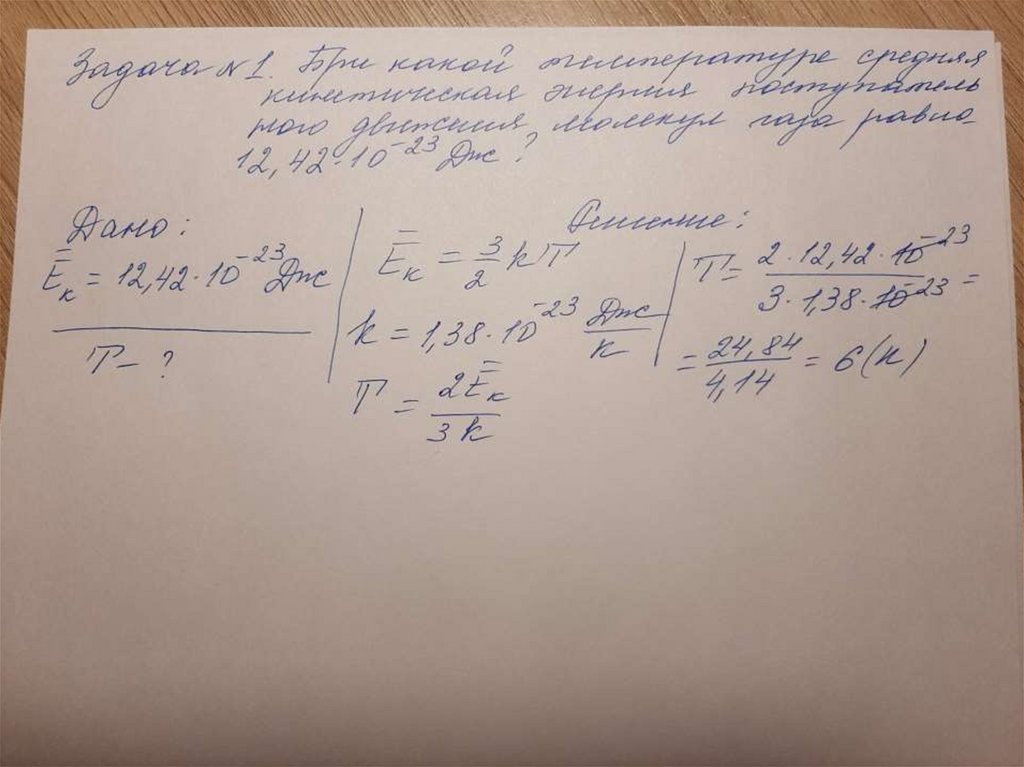 Задача №1. При какой температуре средняя
кинетическая энергия поступатель
ного движения молекул газа равна
12,42·10⁻²³ Дж?
Дано:
Ē̄ₖ = 12,42·10⁻²³ Дж
T – ?
Решение:
Ē̄ₖ = 3/2 kT
k = 1,38·10⁻²³ Дж/К
T = 2Ē̄ₖ / 3k
T = 2·12,42·10⁻²³ / 3·1,38·10⁻²³ =
= 24,84 / 4,14 = 6 (К)